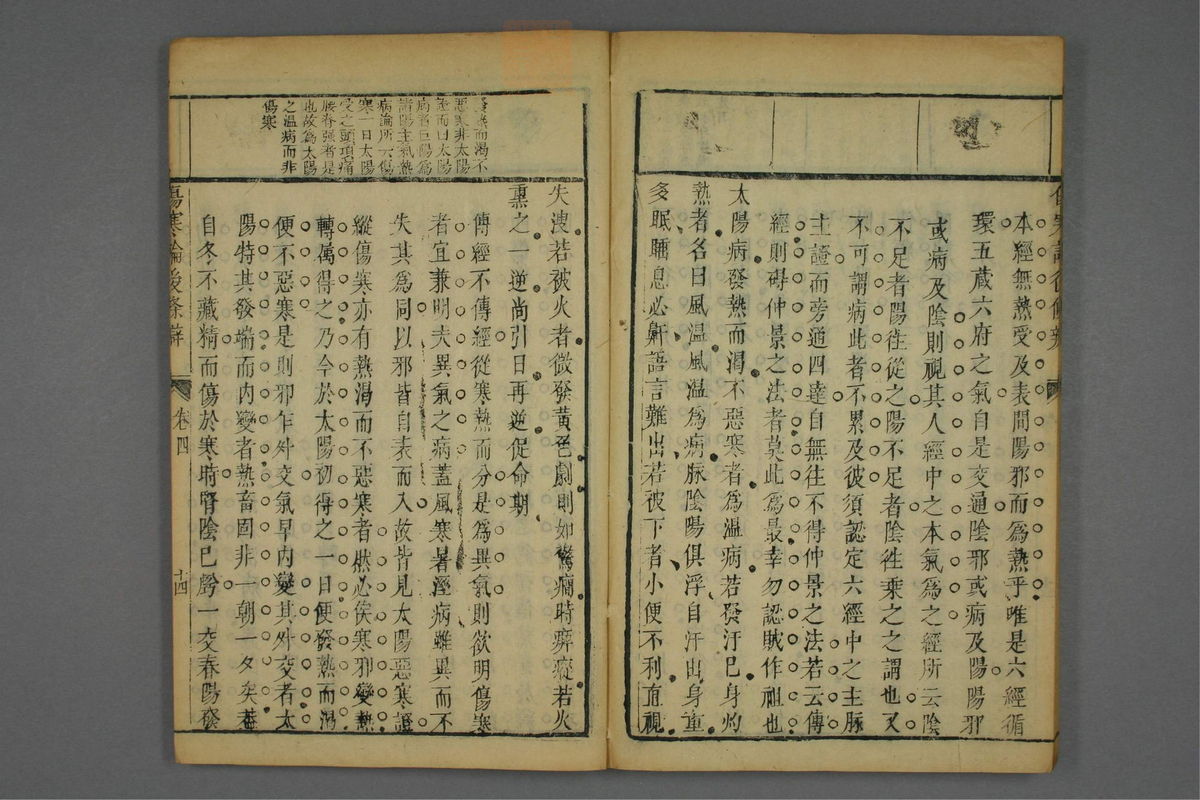 本經無熱受及表間陽邪而爲熱乎唯是六經循
環五蔵六府之氣自是交通陰邪或病及陽陽邪
或病及陰則視其人經中之本氣爲之經所云陰
不足者陽往從之陽不足者陰徃乗之之謂也又
不可謂病此者不累及彼須認定六經中之主脉
主證而旁通四達自無往不得仲景之法若云傳
經則碍仲景之法者莫此爲最幸勿認賊作祖也
太陽病發熱而渴不惡寒者爲温病若發汗已身灼
熱者名曰風温風温爲病脉陰陽俱浮自汗出身重
多眠睡息必鼾語言難出若被下者小便不利直視
發熱而渴不
惡寒非太陽
證而曰太陽
病者巨陽爲
諸陽主氣熱
病論所云傷
寒一日太陽
受之頭項痛
腰脊强者是
也故爲太陽
之温病而非
傷寒
失溲若被火者微發黃色劇則如驚癎時瘈瘲若火
熏之一逆尚引日再逆促命期
傳經不傳經從寒熱而分是爲異氣則欲明傷寒
者宜兼明夫異氣之病蓋風寒暑溼病雖異而不
失其爲同以邪皆自表而入故皆見太陽惡寒證
縱傷寒亦有熱渴而不惡寒者然必俟寒邪變熱
轉属得之乃今於太陽初得之一日便發熱而渴
便不惡寒是則邪乍外交氣早内變其外交者太
陽特其發端而内變者熱畜固非一朝一夕矣蓋
自冬不藏精而傷於寒時腎陰已虧一交春陽發
傷寒論後條辨
卷四
十四